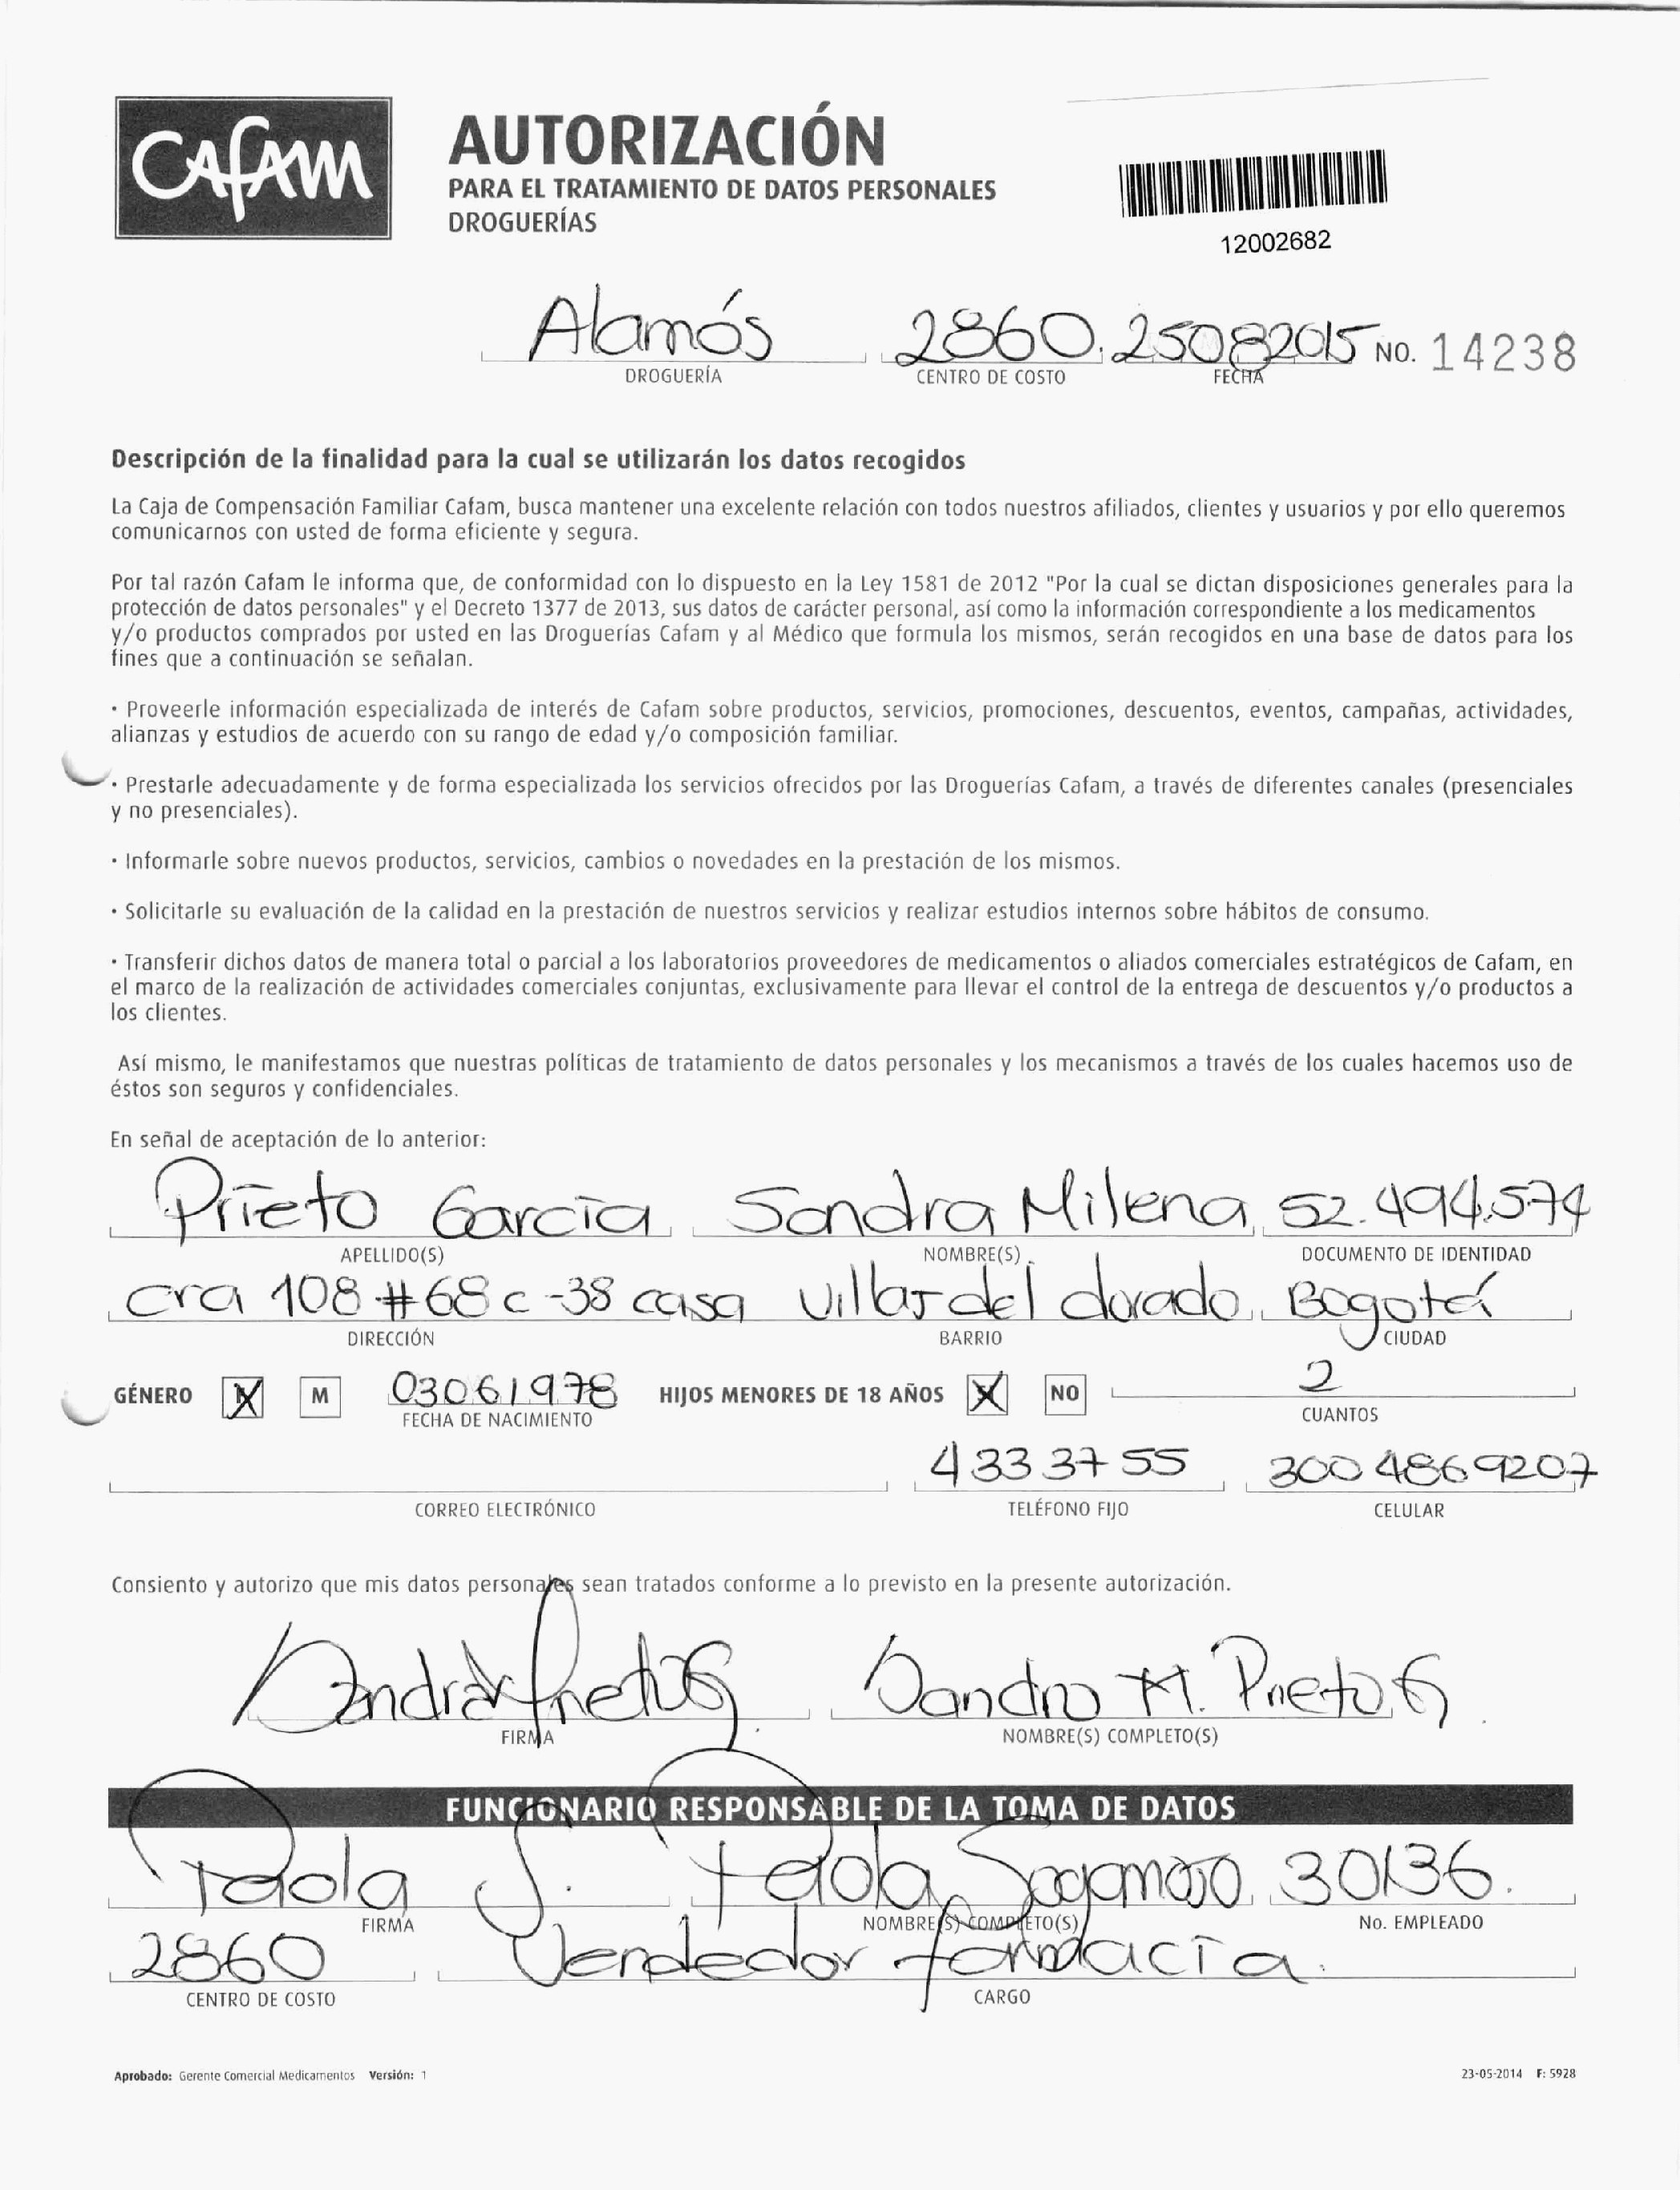 CAFAM
AUTORIZACIÓN
PARA EL TRATAMIENTO DE DATOS PERSONALES
DROGUERÍAS
12002682
Alamós 2860. 25082015 NO. 14238
DROGUERÍA CENTRO DE COSTO FECHA
Descripción de la finalidad para la cual se utilizarán los datos recogidos
La Caja de Compensación Familiar Cafam, busca mantener una excelente relación con todos nuestros afiliados, clientes y usuarios y por ello queremos
comunicarnos con usted de forma eficiente y segura.
Por tal razón Cafam le informa que, de conformidad con lo dispuesto en la Ley 1581 de 2012 "Por la cual se dictan disposiciones generales para la
protección de datos personales" y el Decreto 1377 de 2013, sus datos de carácter personal, así como la información correspondiente a los medicamentos
y/o productos comprados por usted en las Droguerías Cafam y al Médico que formula los mismos, serán recogidos en una base de datos para los
fines que a continuación se señalan.
· Proveerle información especializada de interés de Cafam sobre productos, servicios, promociones, descuentos, eventos, campañas, actividades,
alianzas y estudios de acuerdo con su rango de edad y/o composición familiar.
· Prestarle adecuadamente y de forma especializada los servicios ofrecidos por las Droguerías Cafam, a través de diferentes canales (presenciales
y no presenciales).
· Informarle sobre nuevos productos, servicios, cambios o novedades en la prestación de los mismos.
· Solicitarle su evaluación de la calidad en la prestación de nuestros servicios y realizar estudios internos sobre hábitos de consumo.
· Transferir dichos datos de manera total o parcial a los laboratorios proveedores de medicamentos o aliados comerciales estratégicos de Cafam, en
el marco de la realización de actividades comerciales conjuntas, exclusivamente para llevar el control de la entrega de descuentos y/o productos a
los clientes.
Así mismo, le manifestamos que nuestras políticas de tratamiento de datos personales y los mecanismos a través de los cuales hacemos uso de
éstos son seguros y confidenciales.
En señal de aceptación de lo anterior:
Prieto García Sandra Milena 52.494.574
APELLIDO(S) NOMBRE(S) DOCUMENTO DE IDENTIDAD
cra 108 # 68 c -38 casa villas del dorado Bogotá
DIRECCIÓN BARRIO CIUDAD
GÉNERO X M 03061978 HIJOS MENORES DE 18 AÑOS X NO 2
FECHA DE NACIMIENTO CUANTOS
4333755 3004869207
CORREO ELECTRÓNICO TELÉFONO FIJO CELULAR
Consiento y autorizo que mis datos personales sean tratados conforme a lo previsto en la presente autorización.
Sandra Prieto G Sandra M. Prieto G
FIRMA NOMBRE(S) COMPLETO(S)
FUNCIONARIO RESPONSABLE DE LA TOMA DE DATOS
Paola S. Paola Sogamoso 30136.
FIRMA NOMBRE(S) COMPLETO(S) No. EMPLEADO
2860 Vendedor farmacia.
CENTRO DE COSTO CARGO
Aprobado: Gerente Comercial Medicamentos Versión: 1 23-05-2014 F: 5928